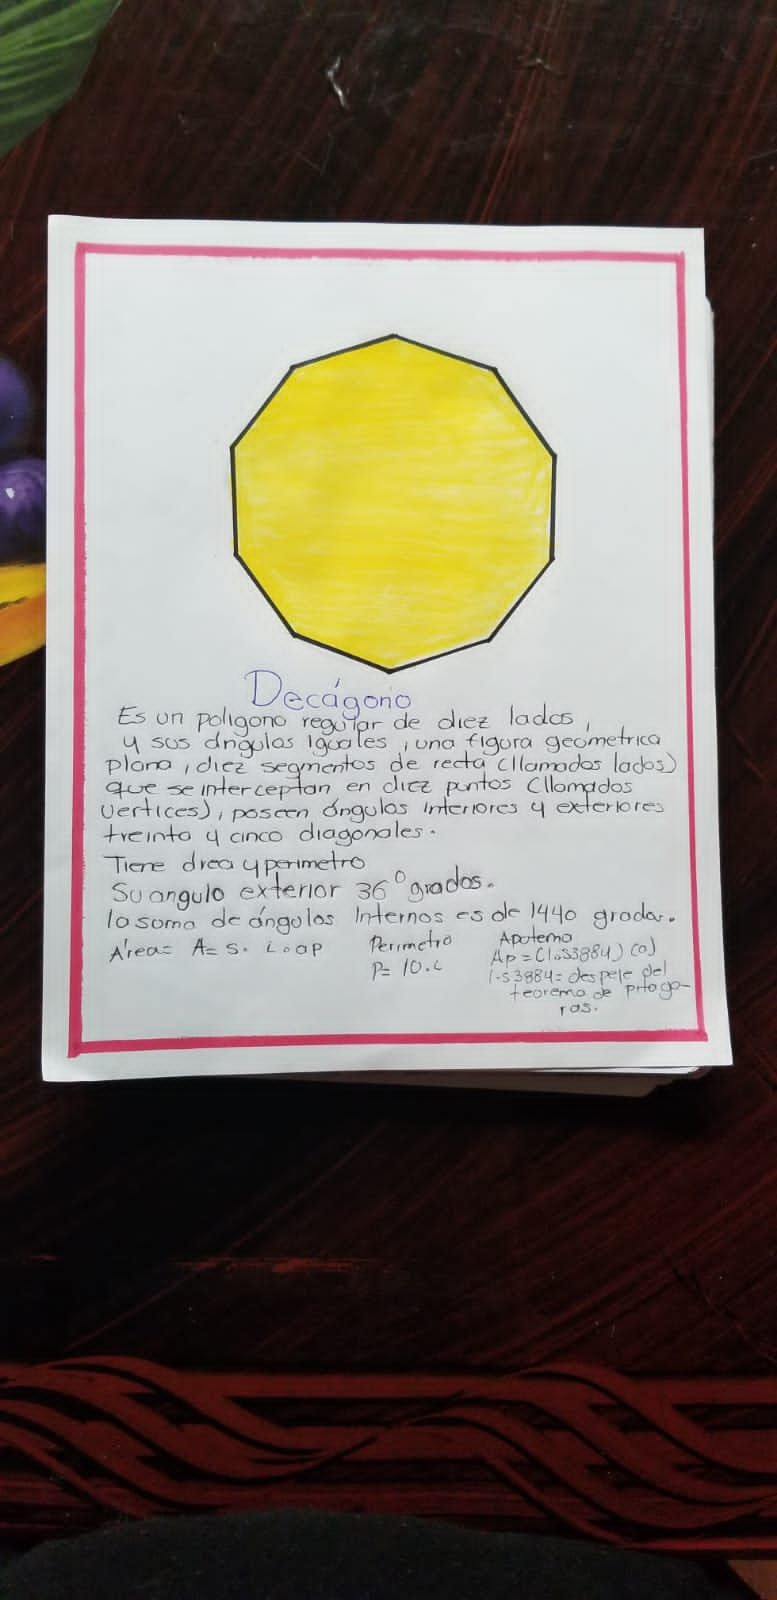 Decágono
Es un poligono regular de diez lados,
y sus ángulos iguales, una figura geometrica
plana, diez segmentos de recta (llamados lados)
que se interceptan en diez puntos (llamados
vertices), poseen ángulos interiores y exteriores
treinta y cinco diagonales.
Tiene área y perimetro
Su angulo exterior 36° grados.
la suma de ángulos Internos es de 1440 grados.
Área= A= 5. L. ap
Perimetro
P= 10.L
Apotema
Ap = (1.53884) (a)
1.53884= despeje del
teorema de pitago-
ras.